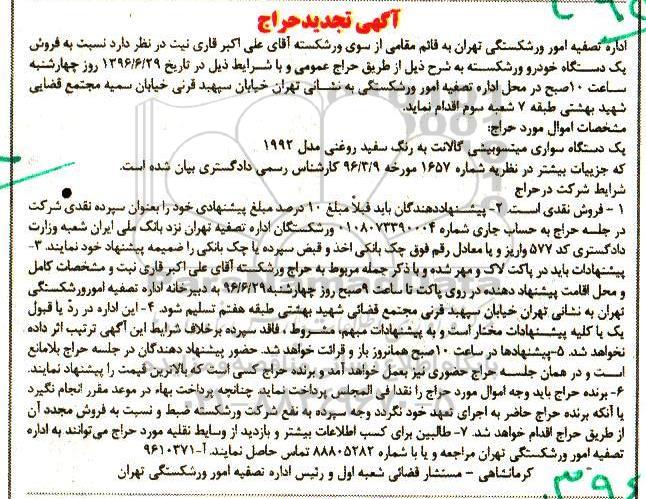 آگهی تجدید حراج
اداره تصفیه امور ورشکستگی تهران به قائم مقامی از سوی ورشکسته آقای علی اکبر قاری نیت در نظر دارد نسبت به فروش
یک دستگاه خودرو ورشکسته به شرح ذیل از طریق حراج عمومی و با شرایط ذیل در تاریخ ۱۳۹۶/۶/۲۹ روز چهارشنبه
ساعت ۱۰صبح در محل اداره تصفیه امور ورشکستگی به نشانی تهران خیابان سپهبد قرنی خیابان سمیه مجتمع قضایی
شهید بهشتی طبقه ۷ شعبه سوم اقدام نماید.
مشخصات اموال مورد حراج:
یک دستگاه سواری میتسوبیشی گالانت به رنگ سفید روغنی مدل ۱۹۹۲
که جزییات بیشتر در نظریه شماره ۱۶۵۷ مورخه ۹۶/۳/۹ کارشناس رسمی دادگستری بیان شده است.
شرایط شرکت درحراج
۱ - فروش نقدی است. ۲- پیشنهاددهندگان باید قبلاً مبلغ ۱۰ درصد مبلغ پیشنهادی خود را بعنوان سپرده نقدی شرکت
در جلسه حراج به حساب جاری شماره ۰۱۰۸۰۷۳۳۹۰۰۰۴ ورشکستگان اداره تصفیه تهران نزد بانک ملی ایران شعبه وزارت
دادگستری کد ۵۷۷ واریز و یا معادل رقم فوق چک بانکی اخذ و قبض سپرده یا چک بانکی را ضمیمه پیشنهاد خود نمایند. ۳-
پیشنهادات باید در پاکت لاک و مهر شده و با ذکر جمله مربوط به حراج ورشکسته آقای علی اکبر قاری نیت و مشخصات کامل
و محل اقامت پیشنهاد دهنده در روی پاکت تا ساعت ۹صبح روز چهارشنبه ۹۶/۶/۲۹ به دبیرخانه اداره تصفیه امورورشکستگی
تهران به نشانی تهران خیابان سپهبد قرنی مجتمع قضائی شهید بهشتی طبقه هفتم تسلیم شود. ۴- این اداره در ردّ یا قبول
یک یا کلیه پیشنهادات مختار است و به پیشنهادات مبهم، مشروط، فاقد سپرده برخلاف شرایط این آگهی ترتیب اثر داده
نخواهد شد. ۵-پیشنهادها در ساعت ۱۰صبح همانروز باز و قرائت خواهد شد. حضور پیشنهاد دهندگان در جلسه حراج بلامانع
است و در همان جلسه حراج حضوری نیز بعمل خواهد آمد و برنده حراج کسی است که بالاترین قیمت را پیشنهاد نمایند.
۶- برنده حراج باید وجه اموال مورد حراج را نقدا فی المجلس پرداخت نماید. چنانچه پرداخت بهاء در موعد مقرر انجام نگیرد
یا آنکه برنده حراج حاضر به اجرای تعهد خود نگردد وجه سپرده به نفع شرکت ورشکسته ضبط و نسبت به فروش مجدد آن
از طریق حراج اقدام خواهد شد. ۷- طالبین برای کسب اطلاعات بیشتر و بازدید از وسایط نقلیه مورد حراج می‌توانند به اداره
تصفیه امور ورشکستگی تهران مراجعه و یا با شماره ۸۸۸۰۵۲۸۲ تماس حاصل نمایند. آ-۹۶۱۰۳۷۱
کرمانشاهی - مستشار قضائی شعبه اول و رئیس اداره تصفیه امور ورشکستگی تهران